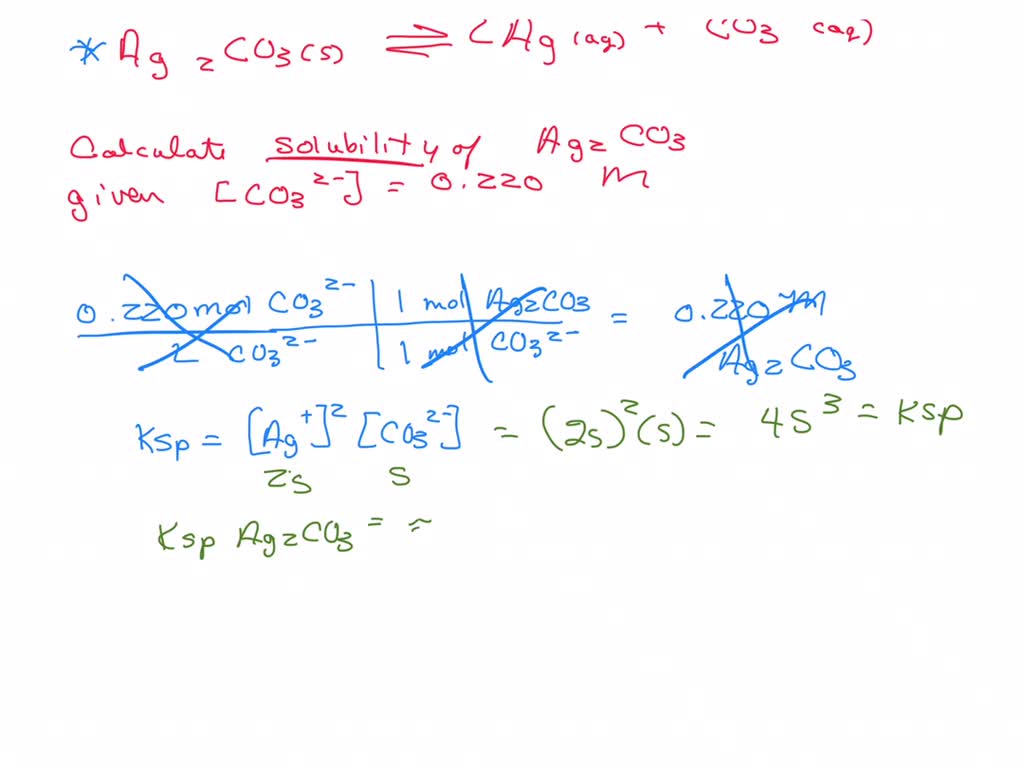 * Ag2CO3(s) ⇌ 2Ag(aq) + CO3(aq)
Calculate solubility of Ag2CO3
given [CO3 2-] = 0.220 M
0.220 mol CO3 2- | 1 mol Ag2CO3 = 0.220 M
L CO3 2- | 1 mol CO3 2- Ag2CO3
Ksp = [Ag+]² [CO3 2-] = (2s)²(s) = 4s³ = Ksp
2s s
Ksp Ag2CO3 = ≈